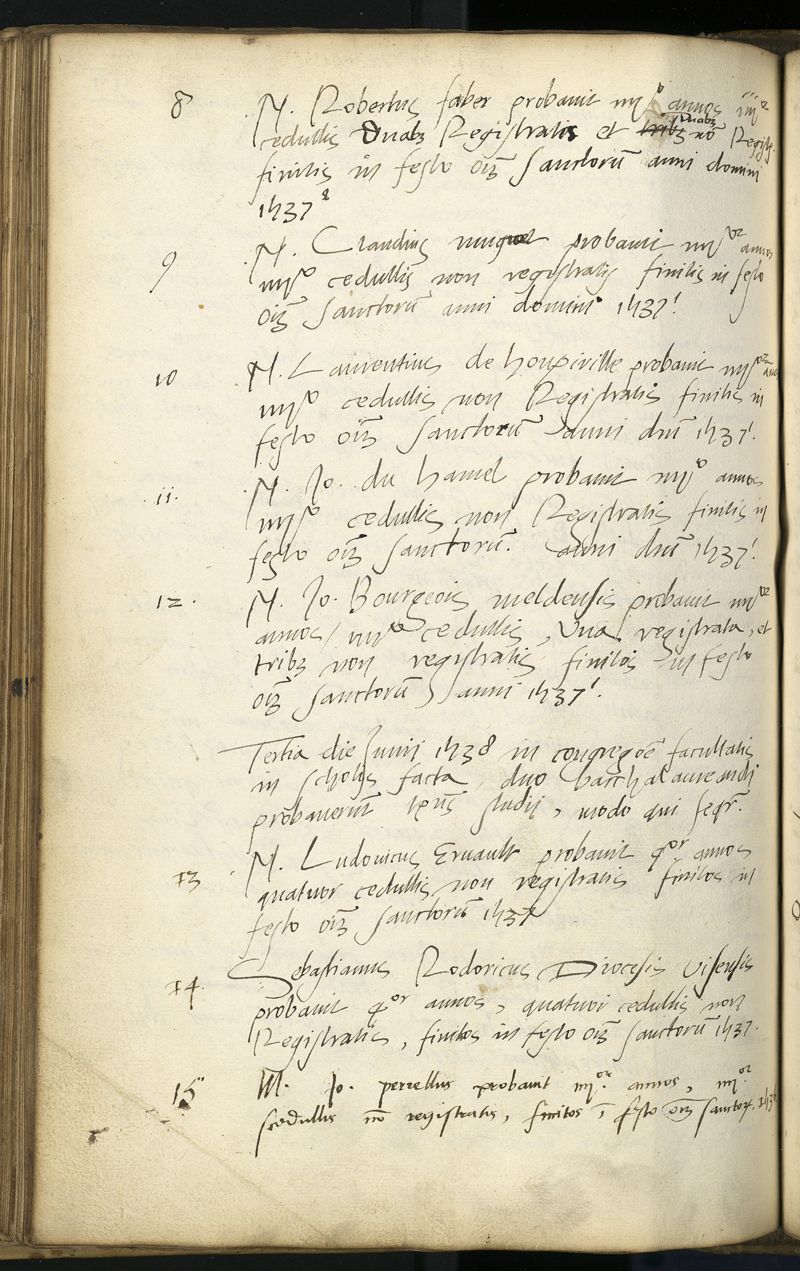 8 M. Robertus faber probavit iiijor annos iiijor
cedullis Duabz Registratis et tribz duabz nō Regist.
finitis in festo oīm Sanctorū anni domini
1537
9 M. Claudius probavit iiijor annos
iiijor cedullis non registratis finitis in festo
oīm Sanctorū anni domini 1537.
10 M. Laurentius de houpiville probavit iiijor annos
iiijor cedullis non Registratis finitis in
festo oīm Sanctorum anni dnī 1537.
ii. M. Jo. du hamel probavit iiijor annos
iiijor cedullis non Registratis finitis in
festo oīm Sanctorū. anni dnī 1537.
12. M. Jo. Bourgeois meldensis probavit iiijor
annos / iiijor cedullis, Una registrata, et
tribz non registratis finitos in festo
oīm Sanctorū anni 1537.
Tertia die Junii 1538 in congregōe facultatis
in scholis facta duo bacchalaureandi
probaverūt tēpus studij, modo qui seqr̄.
13 M. Ludovicus Ervault probavit qor annos
quatuor cedullis non registratis finitos in
festo oīm Sanctorū 1537
14. Sebastianus Rodoricus Diocesis Visensis
probavit qor annos, quatuor cedullis non
Registratis, finitos in festo oīm Sanctorū 1537.
15 M. Jo. perrellus probavit iiijor. annos, iiijor
scedullis nō registratis, finitos ī festo oīm sanctorū.